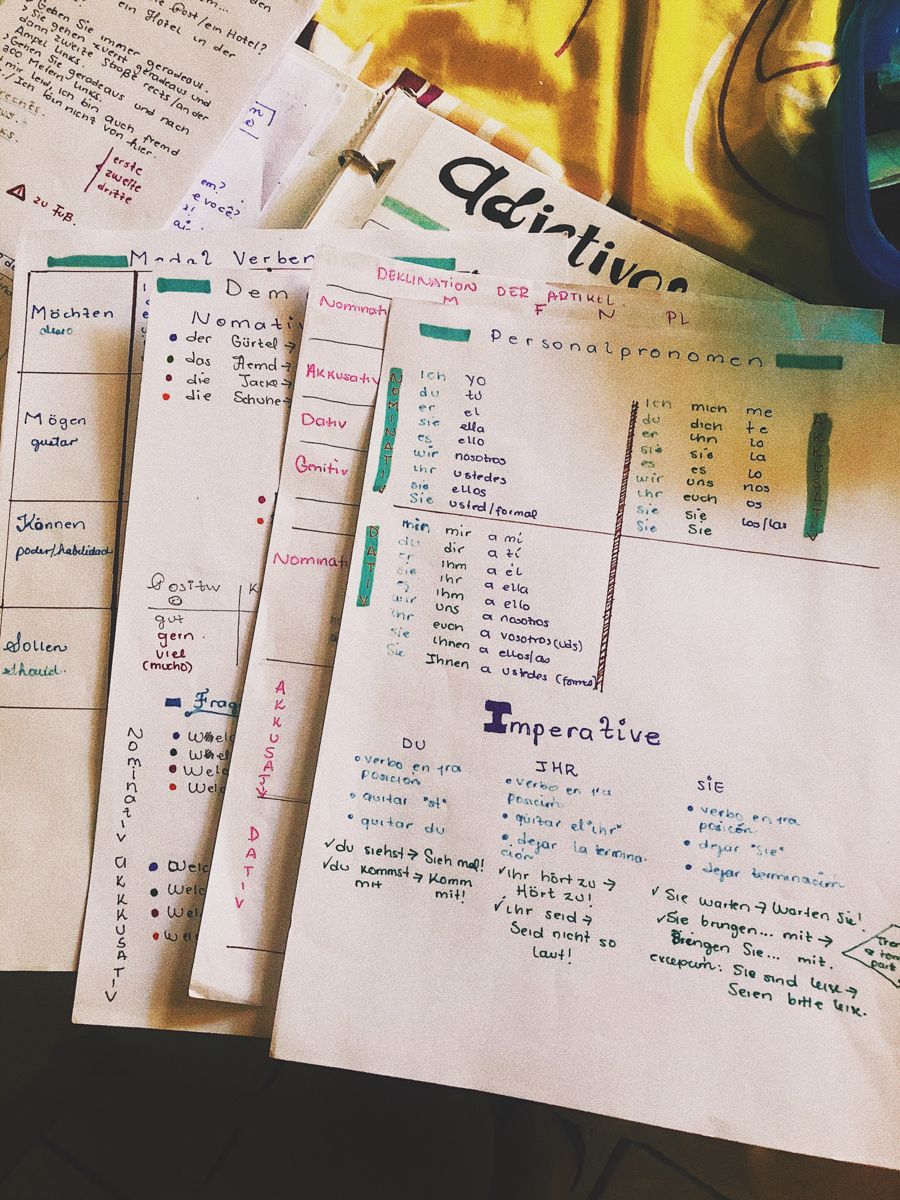 ein Hotel in der
Gehen Sie immer geradeaus.
Sie gehen zuerst geradeaus und
dann zweite Straße rechts/an der
Ampel links.
Gehen Sie geradeaus und nach
300 Metern links.
mir leid, ich bin auch fremd
./Ich bin nicht von hier.
erste
zweite
dritte
zu Fuß.
em?
e você?
Adjetivos
Modal Verben
Möchten
Mögen
gustar
Können
poder/habilidad
Sollen
should.
Dem
Nomativ
der Gürtel →
das Hemd →
die Jacke →
die Schuhe →
Positiv K
gut
gern.
viel
(mucho)
Frag
NOMINATIV
Welc
Welc
Welc
Welc
AKKUSATIV
Welc
Welc
Wel
Wel
DEKLINATION DER ARTIKEL.
M F N PL
Nominati
Akkusativ
Dativ
Genitiv
Nominati
AKKUSATIV
DATIV
Personalpronomen
NOMINATIV
Ich yo
du tú
er el
sie ella
es ello
wir nosotros
ihr ustedes
sie ellos
Sie usted/formal
AKKUSATIV
Ich mich me
du dich te
er ihn lo
sie sie la
es es lo
wir uns nos
ihr euch os
sie sie
Sie Sie los/las
DATIV
min mir a mí
du dir a tí
er ihm a él
sie ihr a ella
es ihm a ello
wir uns a nosotros
ihr euch a vosotros (uds)
sie ihnen a ellos/as
Sie Ihnen a ustedes (formal)
Imperative
DU
• verbo en 1ra
posición
• quitar "st"
• quitar du
✓du siehst → Sieh mal!
✓du kommst → Komm
mit mit!
IHR
• verbo en 1ra
posición
• quitar el "ihr"
• dejar la termina-
ción
✓Ihr hört zu →
Hört zu!
✓Ihr seid →
Seid nicht so
laut!
SIE
• verbo en 1ra
posición
• dejar "sie"
• dejar terminación
✓ Sie warten → Warten Sie!
✓Sie bringen... mit →
Bringen Sie... mit.
excepción: Sie sind leise →
Seien bitte leise.